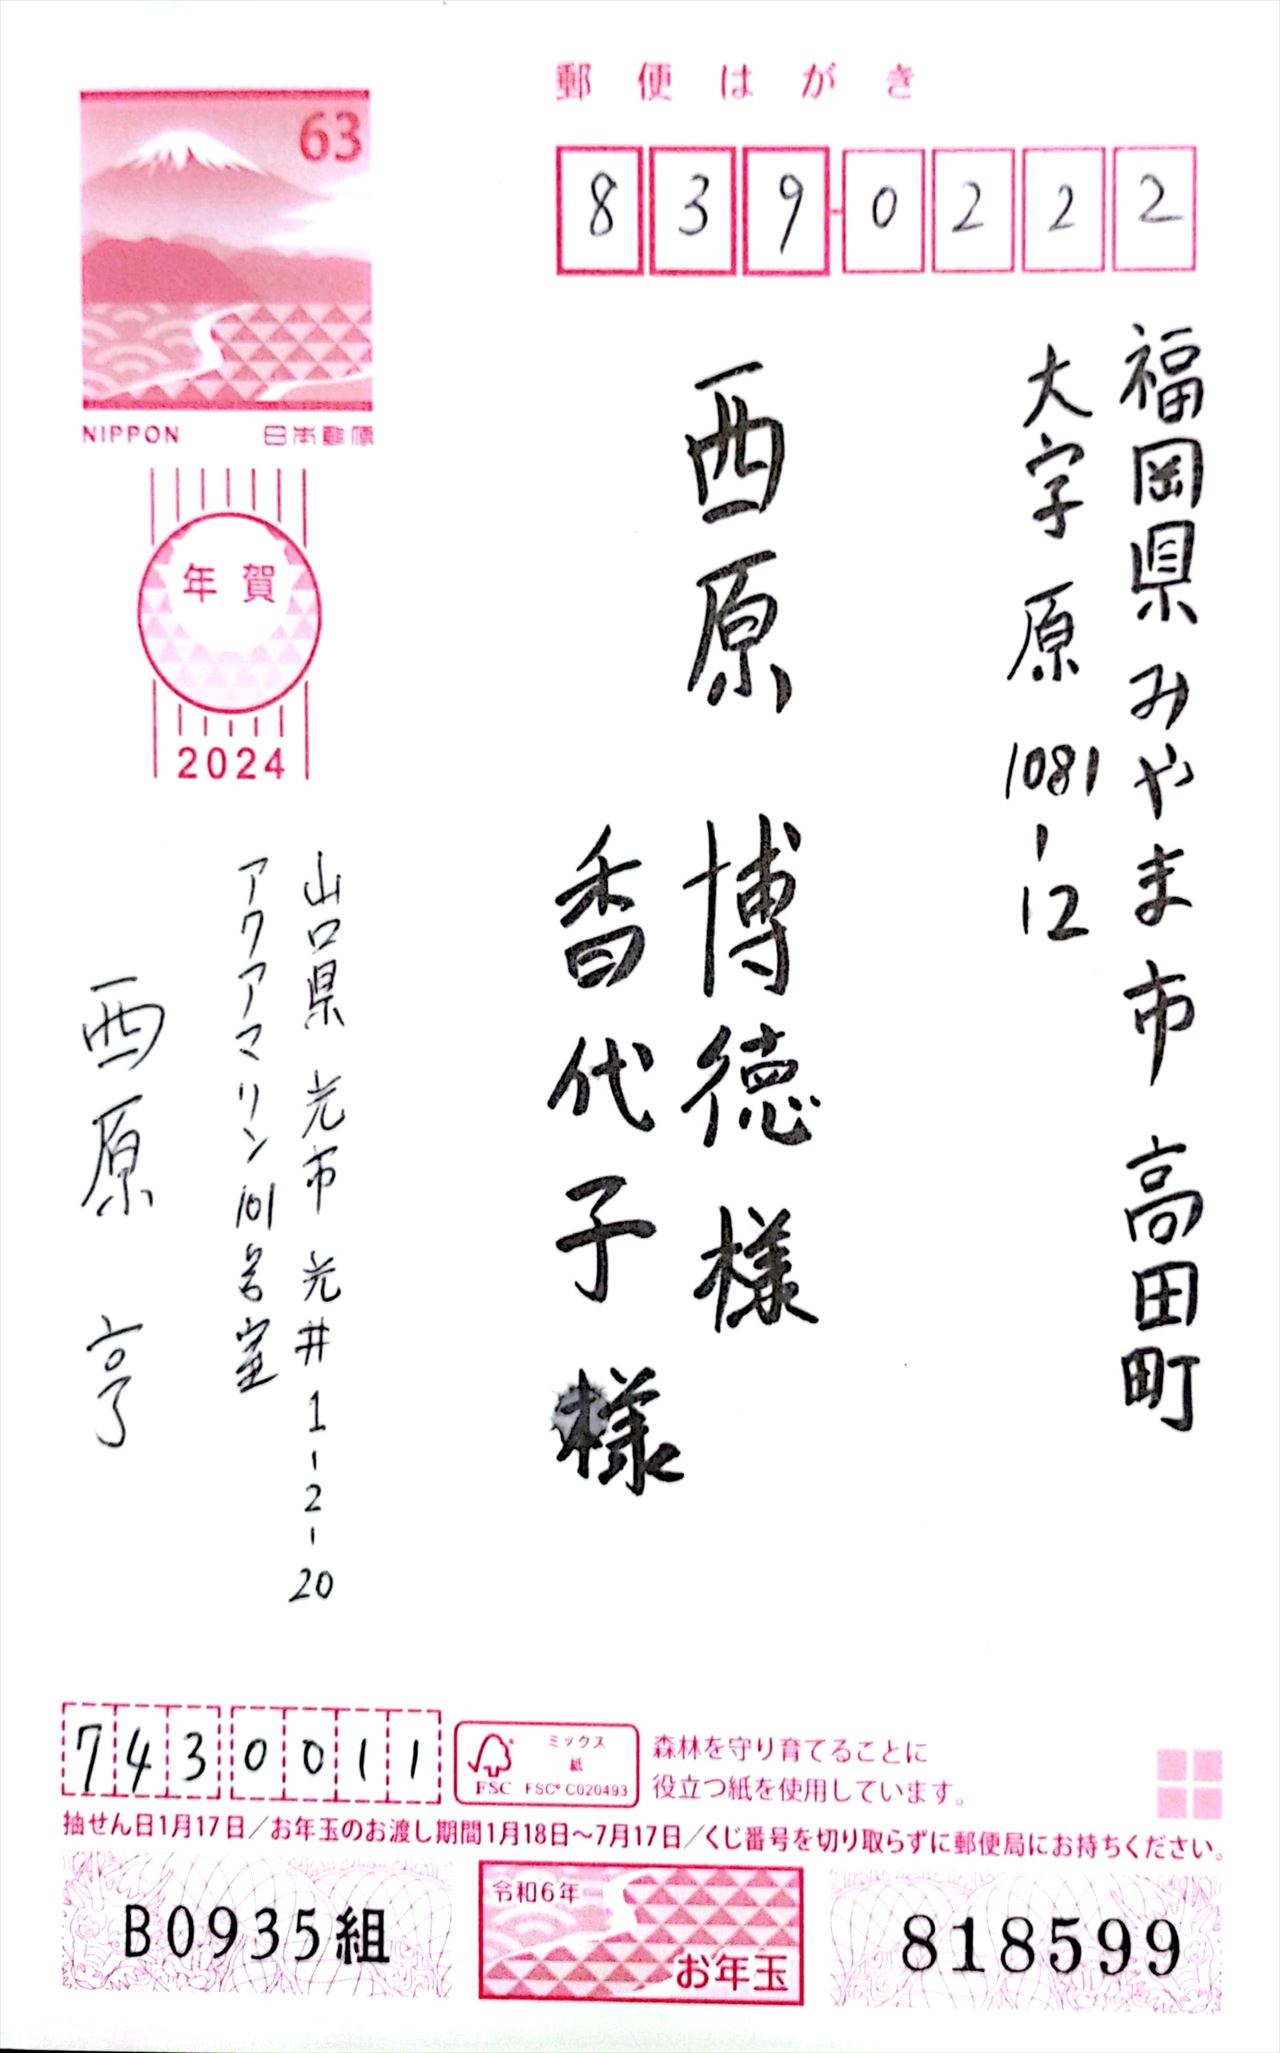 郵便はがき
63
NIPPON 日本郵便
839-0222
福岡県みやま市 高田町
大字 原 1081-12
西原 博徳 様
香代子 様
年賀
2024
山口県 光市 光井 1-2-20
アクアマリン 101号室
西原 亨
7430011
FSC
ミックス
紙
FSC® C020493
森林を守り育てることに
役立つ紙を使用しています。
抽せん日1月17日/お年玉のお渡し期間1月18日〜7月17日/くじ番号を切り取らずに郵便局にお持ちください。
B0935組
令和6年
お年玉
818599